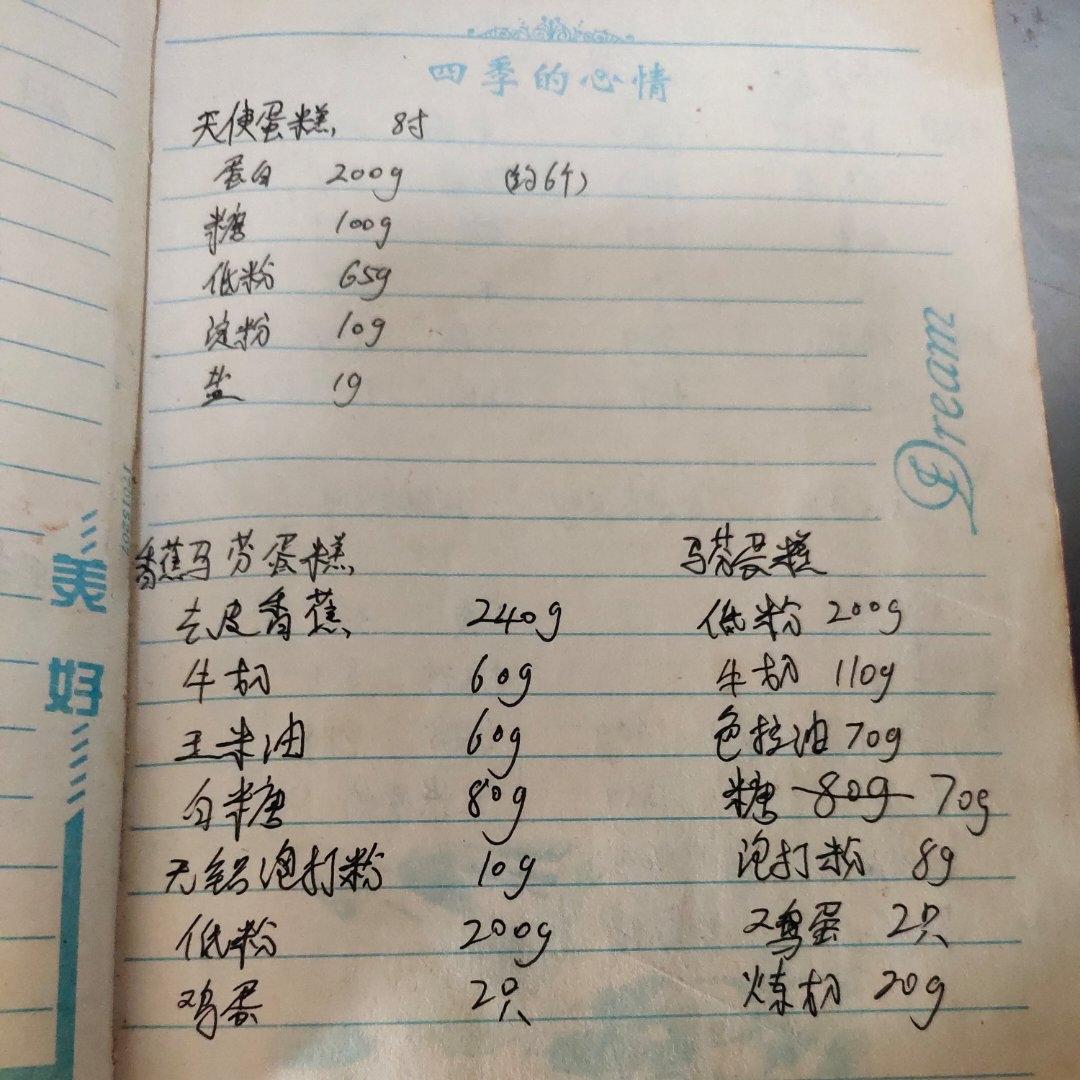 四季的心情
天使蛋糕 8寸
蛋白 200g (约6个)
糖 100g
低粉 65g
淀粉 10g
盐 1g
Dream
美好
香蕉马芬蛋糕
去皮香蕉 240g
牛奶 60g
玉米油 60g
白糖 80g
无铝泡打粉 10g
低粉 200g
鸡蛋 2只
马芬蛋糕
低粉 200g
牛奶 110g
色拉油 70g
糖 80g 70g
泡打粉 8g
鸡蛋 2只
炼奶 20g